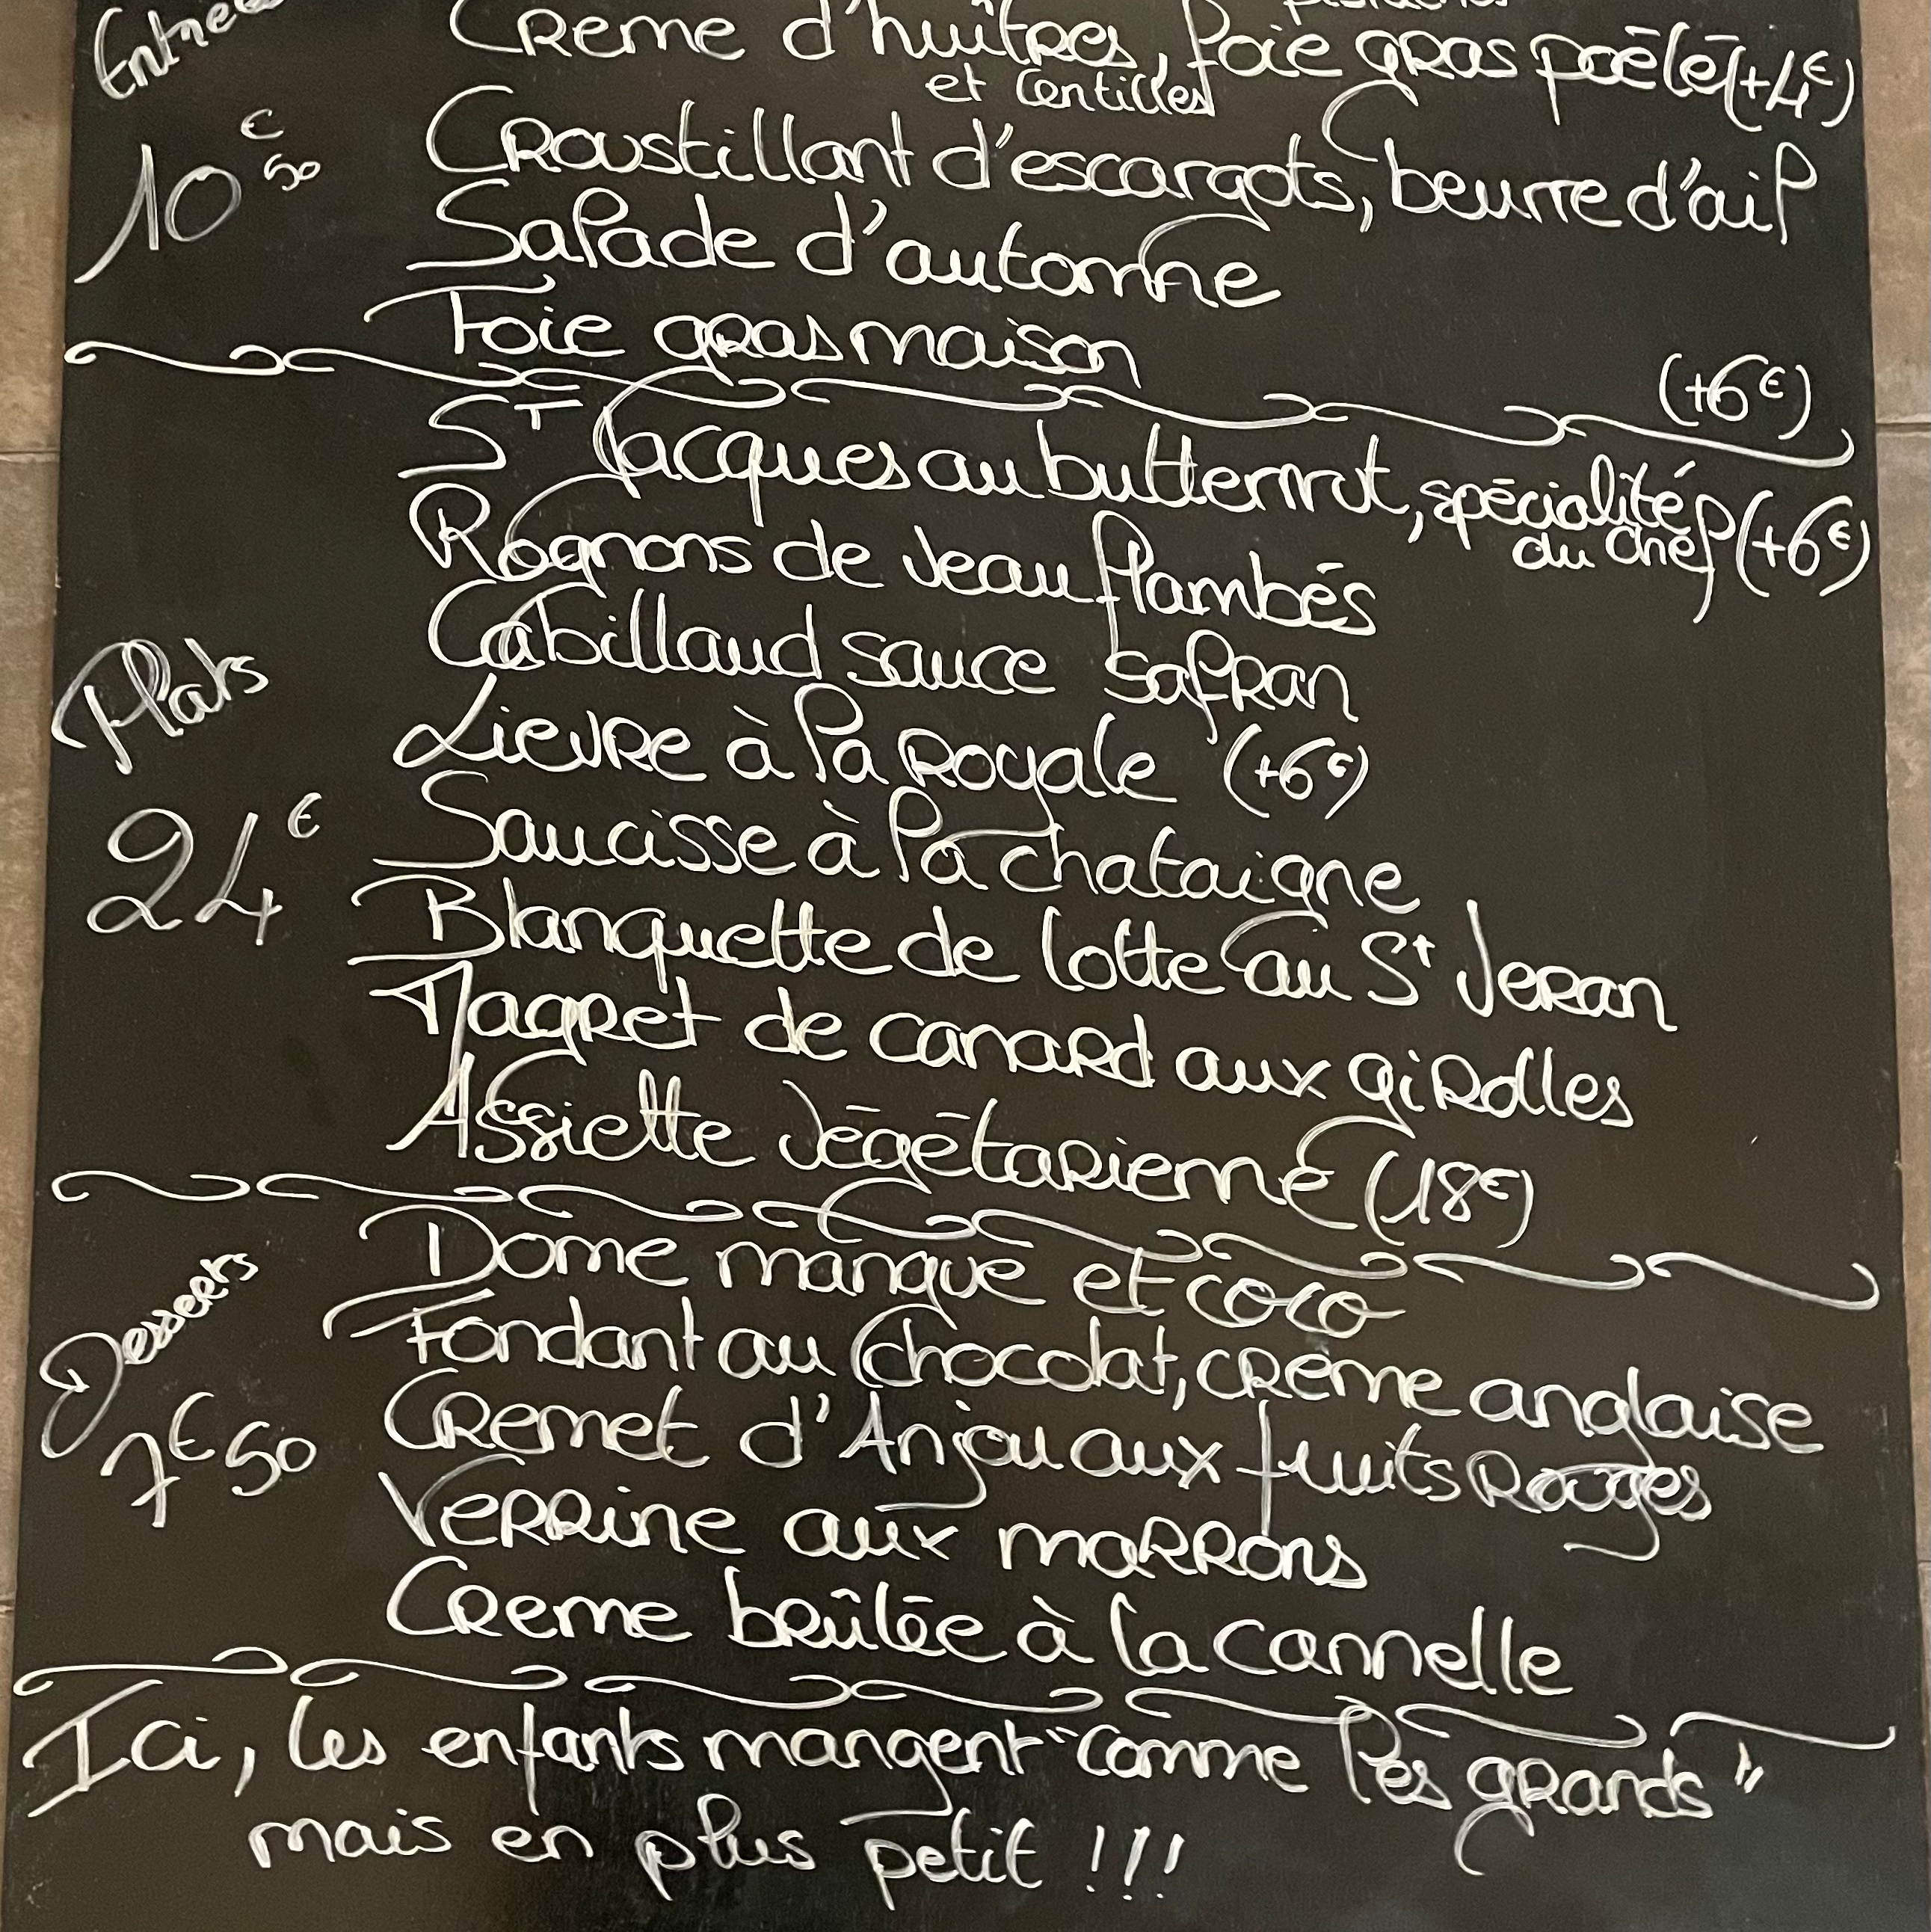 Entrées
Creme d'huîtres, foie gras poêlé (+4€)
et lentilles
10€50
Croustillant d'escargots, beurre d'ail
Salade d'automne
Foie gras maison (+6€)
St Jacques au butternut, spécialité
du chef (+6€)
Rognons de veau flambés
Cabillaud sauce safran
Plats
Lievre à la royale (+6€)
24€
Saucisse à la chataigne
Blanquette de lotte au St Veran
Magret de canard aux girolles
Assiette végétarienne (18€)
Desserts
Dome mangue et coco
Fondant au chocolat, crème anglaise
7€50
Cremet d'Anjou aux fruits Rouges
Verrine aux marrons
Creme brûlée à la cannelle
Ici, les enfants mangent "comme les grands"
mais en plus petit !!!